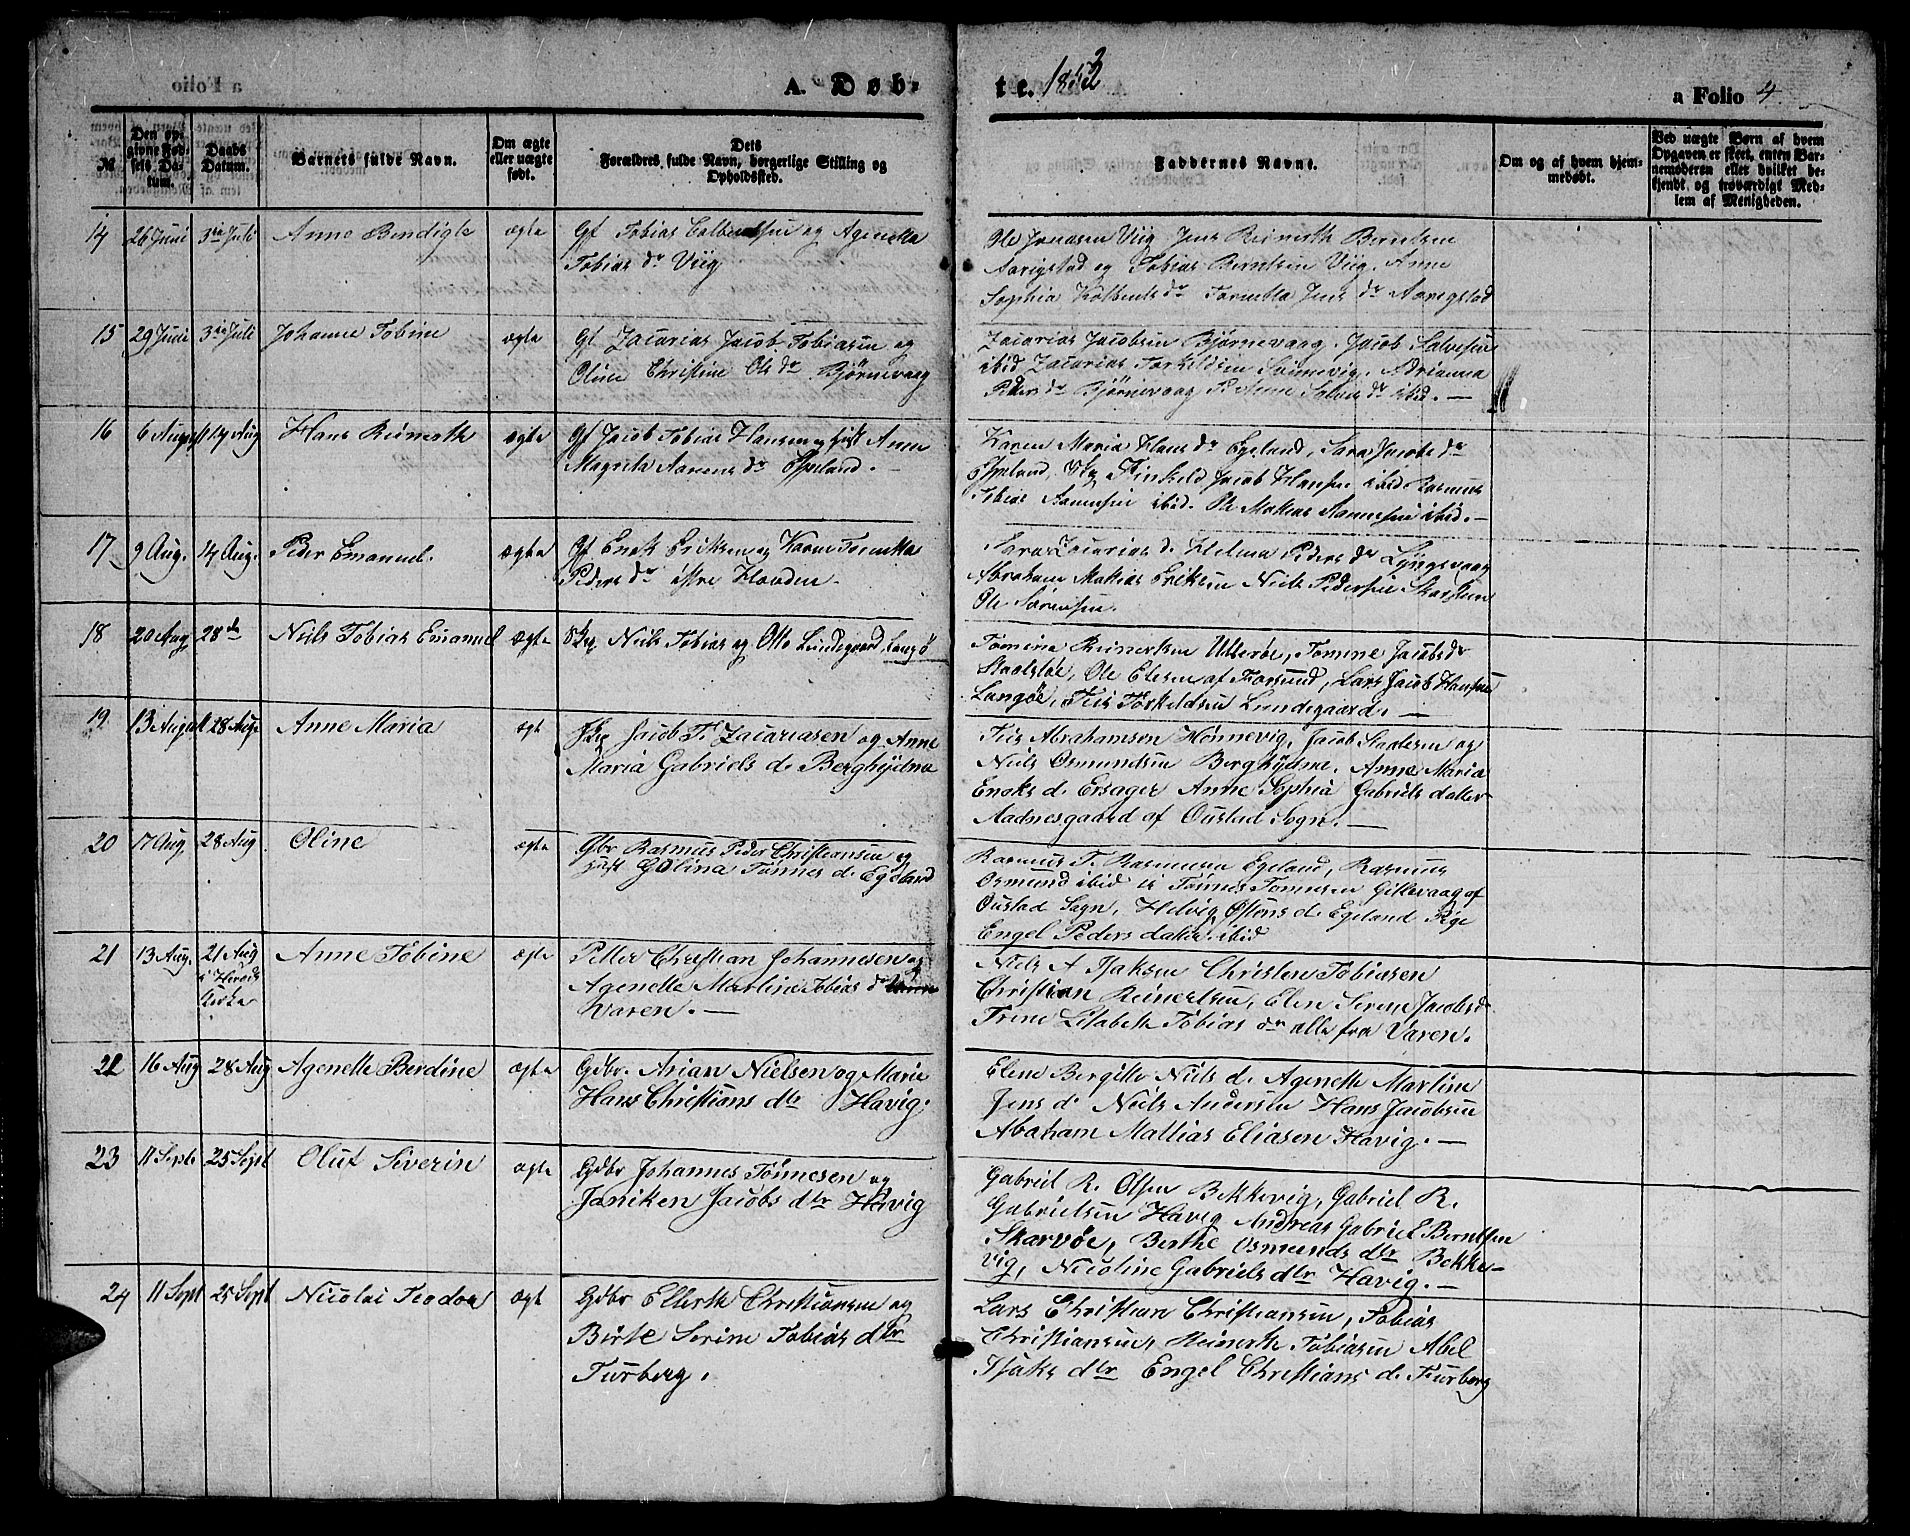 A. Døb=
te. 1852
a Folio 4.
№
Den opgivne Fødsels Datum.
Daabs Datum.
Barnets fulde Navn.
Om ægte eller uægte født.
Dets Forældres fulde Navn, borgerlige Stilling og Opholdssted.
Faddernes Navne.
Om og af hvem hjemmedøbt.
Ved uægte Børn af hvem Opgaven er skeet, enten Barnemoderen eller hvilket bekjendt og troværdigt Medlem af Menigheden.
14 26 Juni 3die Juli Anne Bendigte ægte Gf Tobias og Agenetha
Tobias dr Viig
Ole Jonassen Viig Jens Reinerth Berntsen
Aarigstad og Tobias Berntsen Viig. Anne
Sophia dr Tarnetta Jens dr Aarigstad
15 29 Juni 3die Juli Johanne Tobine ægte Gf Zacarias Jacob Tobiasen og
Oline Christine Ols dr Bjørnevaag
Zacarias Jacobsen Bjørnevaag. Jacob Salvesen
ibid Zacarias Torkildsen Adrianna
Peders dr Bjørnevaag Anne dr ibid. —
16 6 August 14 Aug Hans Reinerth ægte Gf Jacob Tobias Hansen og Anne
Magrete dr Espeland. —
Karen Maria Hans dr Egeland, Sara Jacobs dr
Espeland, Jacob Hansen ibid. Rasmus
Tobias ibid. Ole Matias ibid. —
17 9 Aug. 14 Aug. Peder Emanuel. ægte Gf Enok Eriksen og Karen Tomette
Peders dr østre Hovden.
Zacarias d. Helene Peders dr Lyngsvaag
Abraham Mathias Eriksen Niels Pedersen
Ole Sørensen.
18 20 Aug 28de Niels Tobias Emanuel ægte Niels Tobias og Otto Lundegaard Langø
Tomine Reinertsen Ulserøe, Tomine Jacobsdr
Ole Elesen af Farsund, Lars Jacob Hansen
Langøe, Torkeldsen Lundegaard. —
19 13 August 28 Aug. Anne Maria ægt Jacob T. Zacariasen og Anne
Maria Gabriels d. Berghøidme
Abrahamsen Hønnevig, Jacob og
Niels Osmundsen Anne Maria
Enoks d. Ersager Anne Sophia Gabriels datter
Aadnesgaard af Oustad Sogn. —
20 17 Aug 28 Aug Oline ægte Gbr Rasmus Peder Christiansen og
Golina Tønnes d. Egeland
Rasmus T. Rasmusen Egeland, Rasmus
Osmund ibid Tønnes Tønnesen Gittevaag af
Oustad Sogn, Helvig d. Egeland Pige
Engel Peders datter ibid
21 13 Aug. 21 Aug
i Herads
Kirke Anne Tobine ægte Petter Christian Johannesen og
Agenette Martine Tobias d
Varen. —
Niels A Isaksen Christen Tobiasen
Christian Reinertsen, Elen Serene Jacobsd.
Trine Lisabeth Tobias dr alle fra Varen.
22 16 Aug 28 Aug Agenette Berdine ægte Gdbr. Arian Nielsen og Marie
Hans Christians dtr Havig.
Elene Bergitte Niels d. Agenette Martine
Jens d. Neils Andersen Hans Jacobsen
Abaham Mathias Eliasen Havig. —
23 11 Septb 25 Sept Oluf Severin ægte Gdbr Johannes Tønnesen og
Janiken Jacobs dtr Havig
Gabriel R. Olsen Bekkevig, Gabriel R.
Gabrielsen Havig Andreas Gabriel Berntsen
Skarvøe, Berthe Osmunds dtr Bekke-
vig, Nicoline Gabriels dtr Havig. —
24 11 Sept 25 Sept Nicolai Teodor ægt Gdbr Ellerth Christiansen og
Birte Serine Tobias dtr
Turberg.
Lars Christian Christiansen, Tobias
Christiansen, Reinerth Tobiasen Abel
Isaks dtr Engel Christians d. Furberg